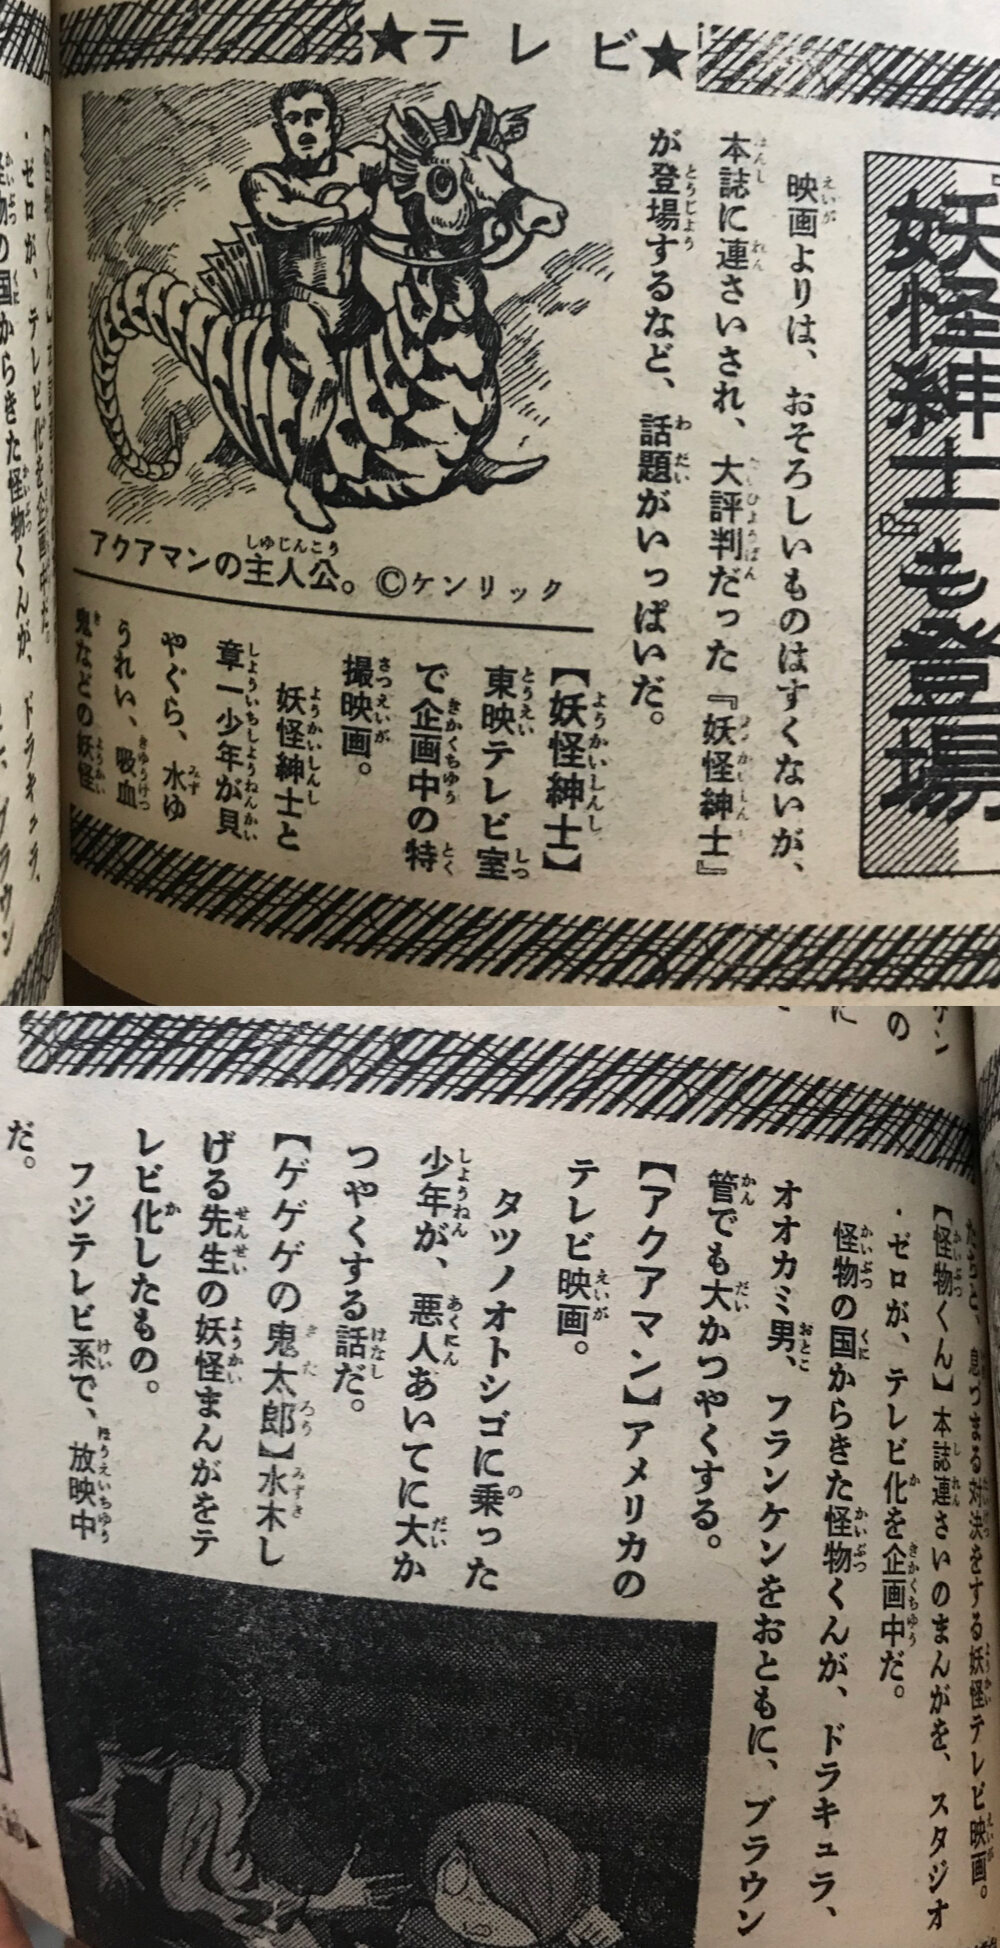 ★テレビ★
『妖怪紳士』も登場
映画よりは、おそろしいものはすくないが、
本誌に連さいされ、大評判だった『妖怪紳士』
が登場するなど、話題がいっぱいだ。
アクアマンの主人公。©ケンリック
【妖怪紳士】
東映テレビ室
で企画中の特
撮映画。
妖怪紳士と
章一少年が貝
やぐら、水ゆ
うれい、吸血
鬼などの妖怪
・ゼロが、テレビ化を企画中だ。
怪物の国からきた怪物くんが、ドラキュラ、
息づまる対決をする妖怪テレビ映画。
【怪物くん】本誌連さいのまんがを、スタジオ
・ゼロが、テレビ化を企画中だ。
怪物の国からきた怪物くんが、ドラキュラ、
オオカミ男、フランケンをおともに、ブラウン
管でも大かつやくする。
【アクアマン】アメリカの
テレビ映画。
タツノオトシゴに乗った
少年が、悪人あいてに大か
つやくする話だ。
【ゲゲゲの鬼太郎】水木し
げる先生の妖怪まんがをテ
レビ化したもの。
フジテレビ系で、放映中
だ。